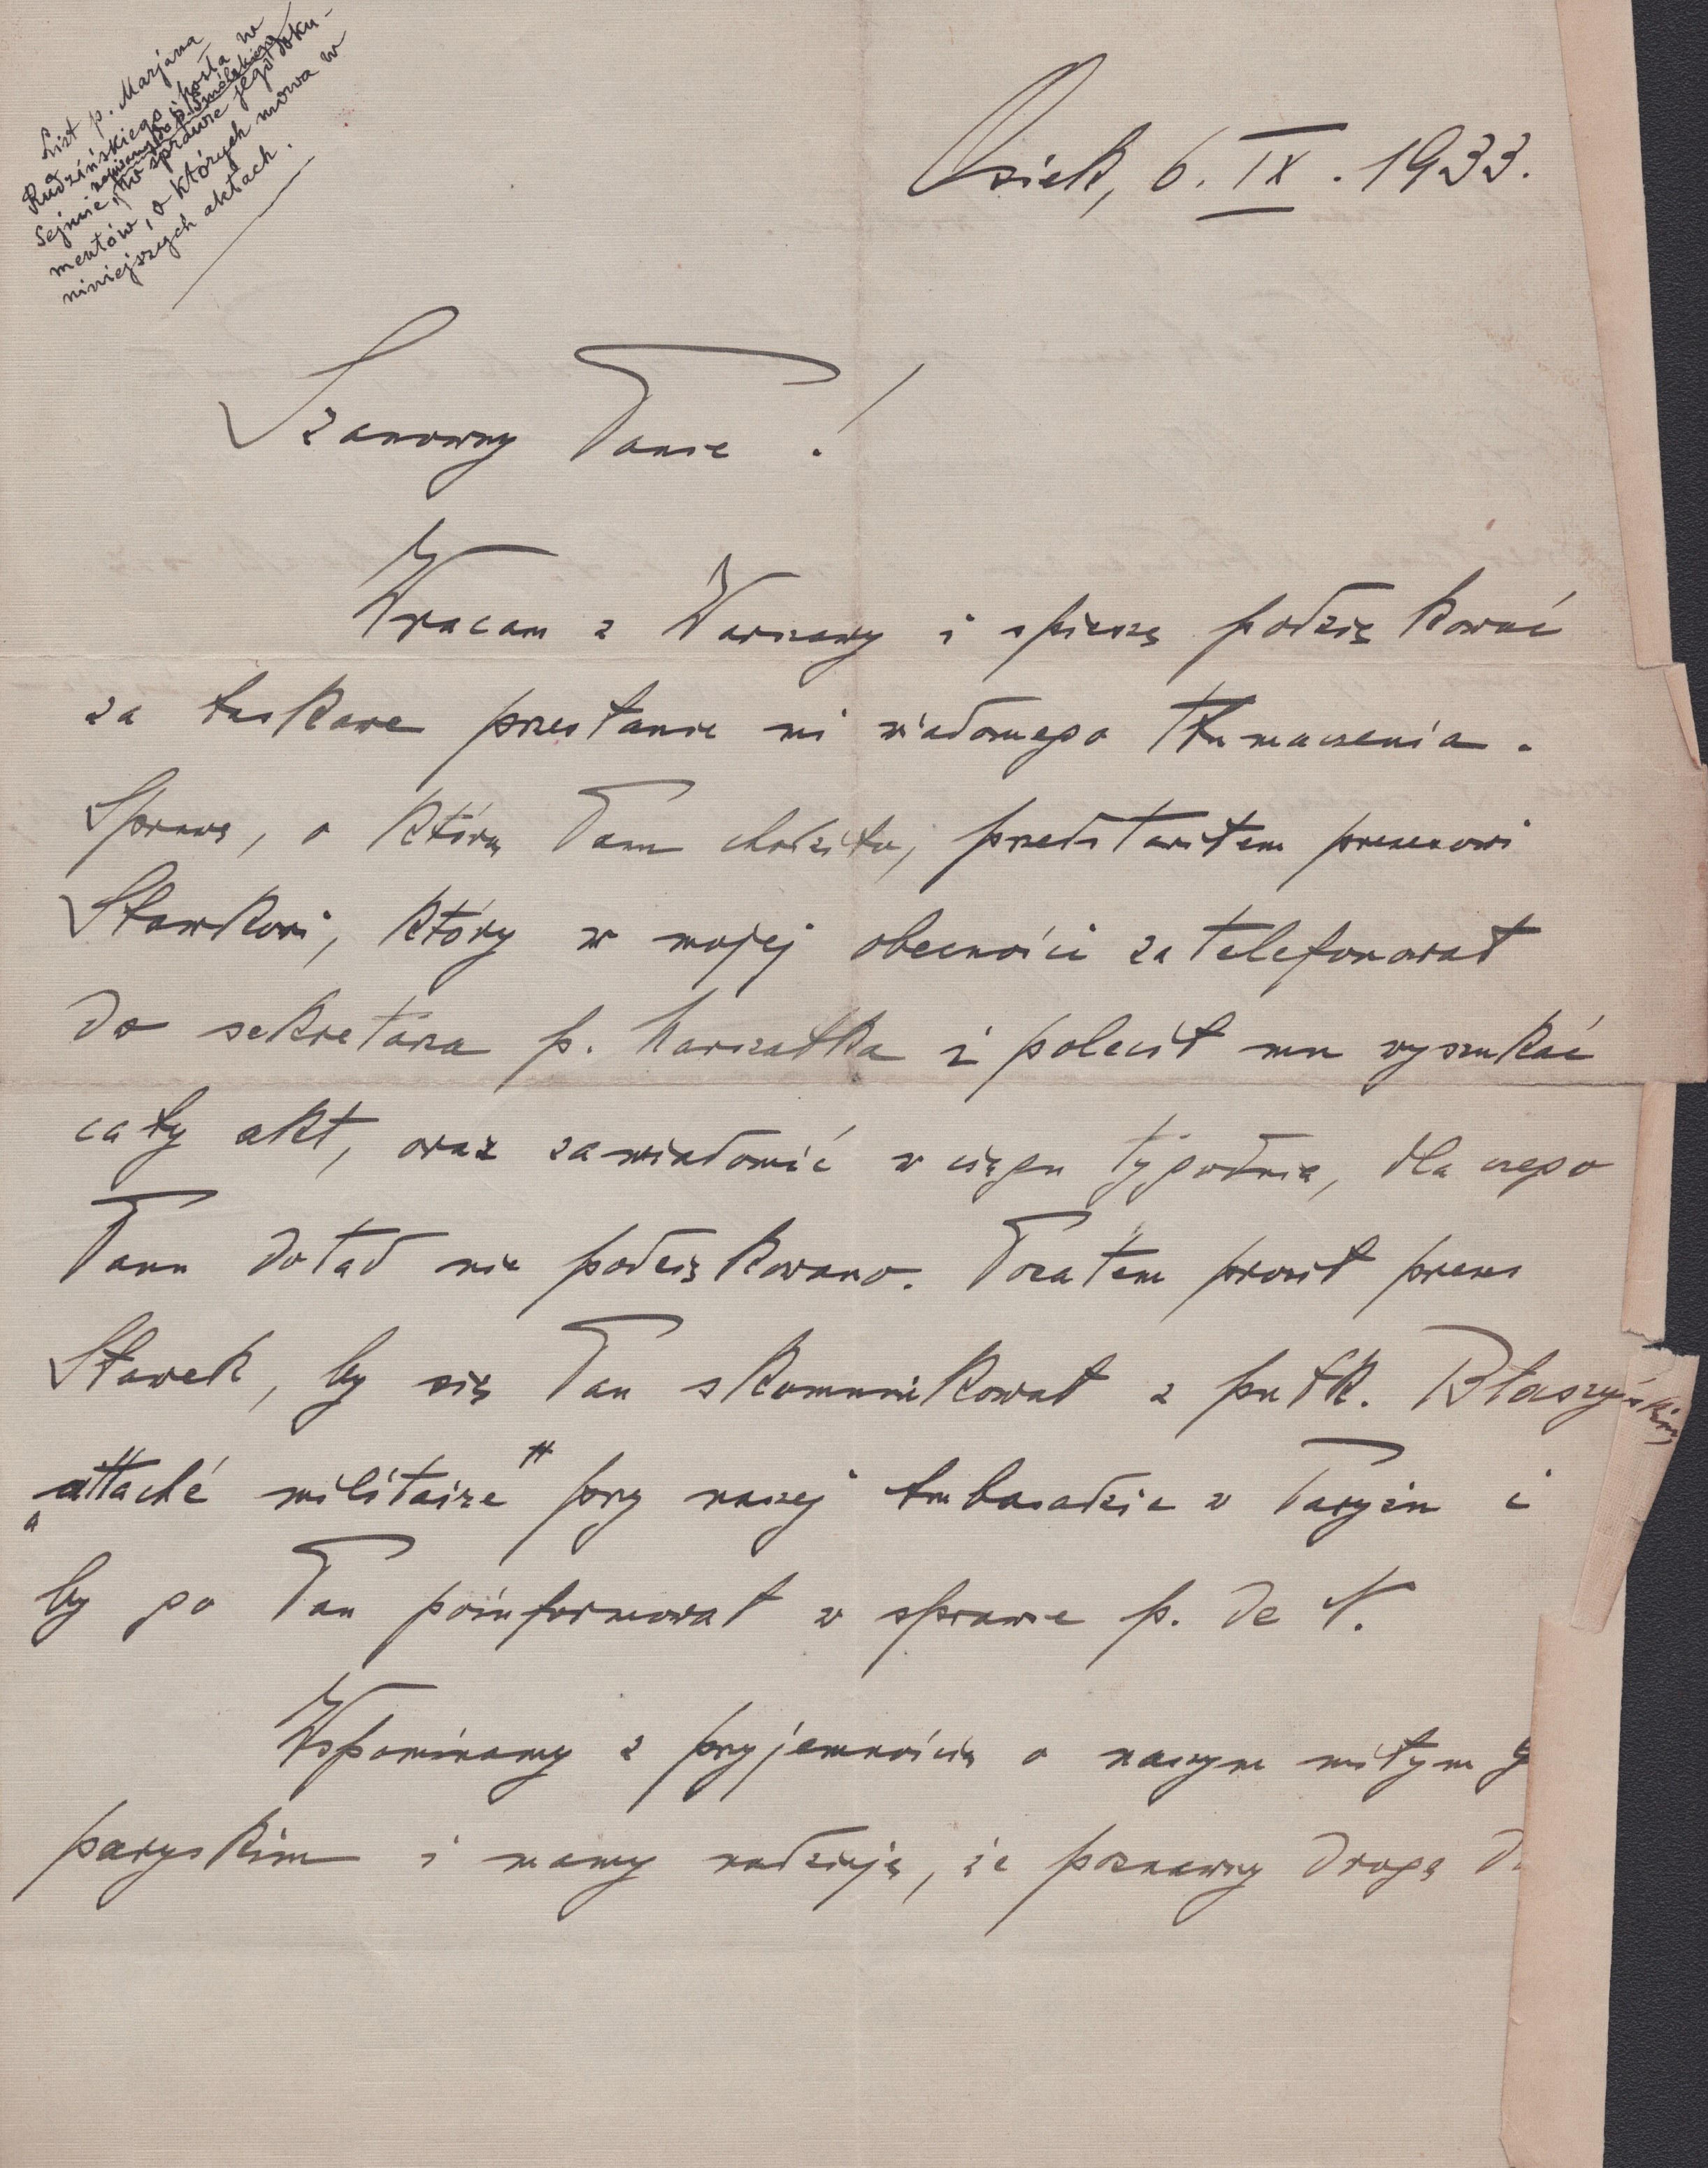 List p. Marjana
Rudzińskiego, posła w
Sejmie w sprawie jego doku-
mentów, o których mowa w
niniejszych aktach.
Osiek, 6. IX. 1933.
Szanowny Panie!
Wracam z Warszawy i spieszę podziękować
za łaskawe przesłanie mi wiadomego tłumaczenia.
Sprawę, o którą Panu chodziło, przedstawiłem prezesowi
Sławkowi, który w mojej obecności zatelefonował
do sekretarza p. Marszałka i polecił mu wyszukać
cały akt, oraz zawiadomić w ciągu tygodnia, dla czego
Panu dotąd nie podziękowano. Pozatem prosił prezes
Sławek, by się Pan skomunikował z pułk. Błaszyńskim
„attaché militaire" przy naszej Ambasadzie w Paryżu i
by go Pan poinformował w sprawie p. de N.
Wspominamy z przyjemnością o naszym miłym
paryskim i mamy nadzieję, że poznawszy drogę